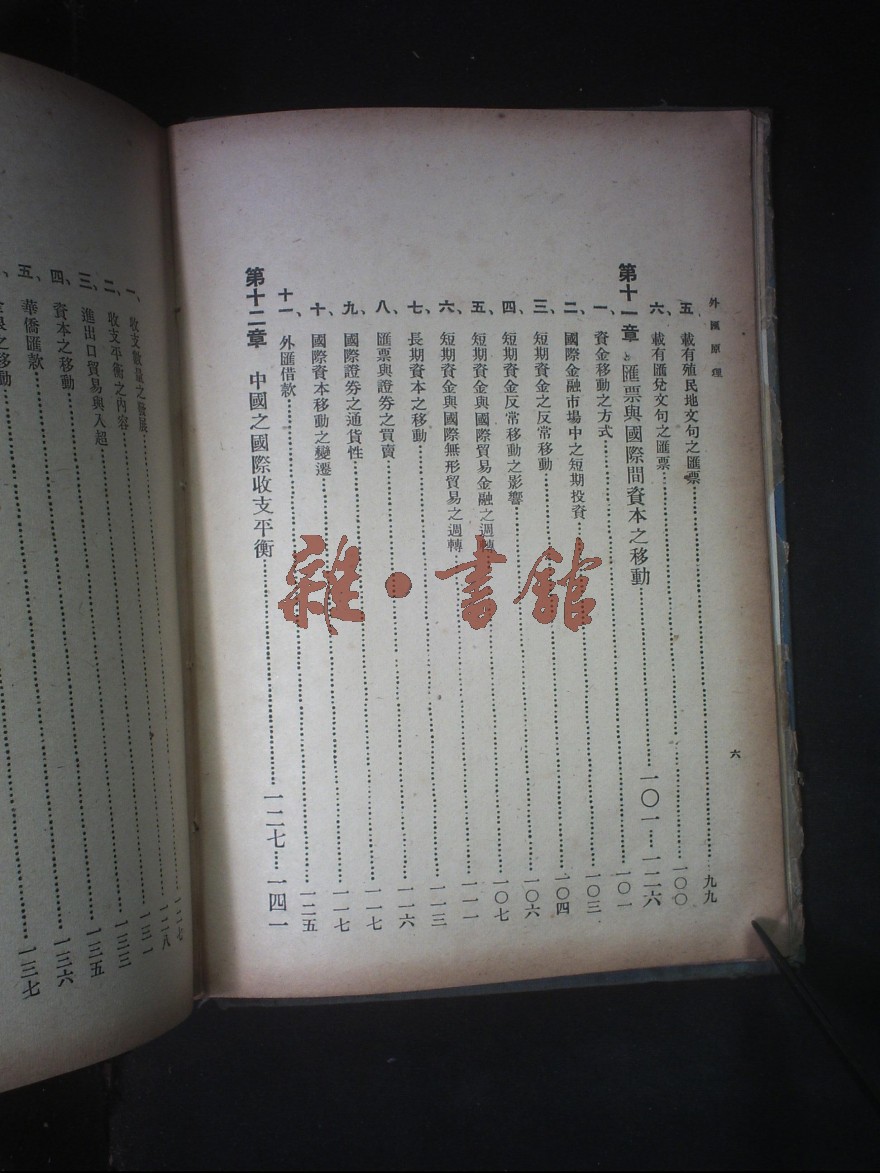 外匯原理
六
五、載有殖民地文句之匯票……九九
六、載有匯兌文句之匯票……一〇〇
第十一章 匯票與國際間資本之移動……一〇一……一二六
一、資金移動之方式……一〇一
二、國際金融市場中之短期投資……一〇三
三、短期資金之反常移動……一〇四
四、短期資金反常移動之影響……一〇六
五、短期資金與國際貿易金融之週轉……一〇七
六、短期資金與國際無形貿易之週轉……一一一
七、長期資本之移動……一一三
八、匯票與證券之買賣……一一六
九、國際證券之通貨性……一一七
十、國際資本移動之變遷……一一七
十一、外匯借款……一二五
第十二章 中國之國際收支平衡……一二七……一四一
一、收支數量之發展……一二七
二、收支平衡之內容……一二八
三、進出口貿易與入超……一三一
四、資本之移動……一三三
五、華僑匯款……一三五
之移動……一三六
一三七
雜·書館